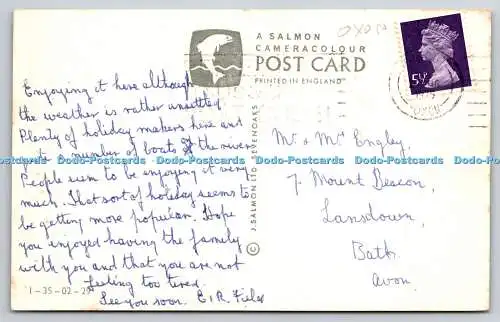 A SALMON
CAMERACOLOUR
POST CARD
PRINTED IN ENGLAND
OXON
5½P
Enjoying it here although
the weather is rather unsettled
Plenty of holiday makers here and
quite a number of boats on the river
People seem to be enjoying it very
much. That sort of holiday seems to
be getting more popular. Hope
you enjoyed having the family
with you and that you are not
feeling too tired.
See you soon. E & R. Field
1-35-02-29
© J. SALMON LTD. SEVENOAKS
Mr & Mrs Engley,
7. Mount Beacon,
Lansdown,
Bath.
Avon.
Dodo-Postcards Dodo-Postcards Dodo-Postcards Dodo-Postcards Dodo-Postcards Dodo-Postcards